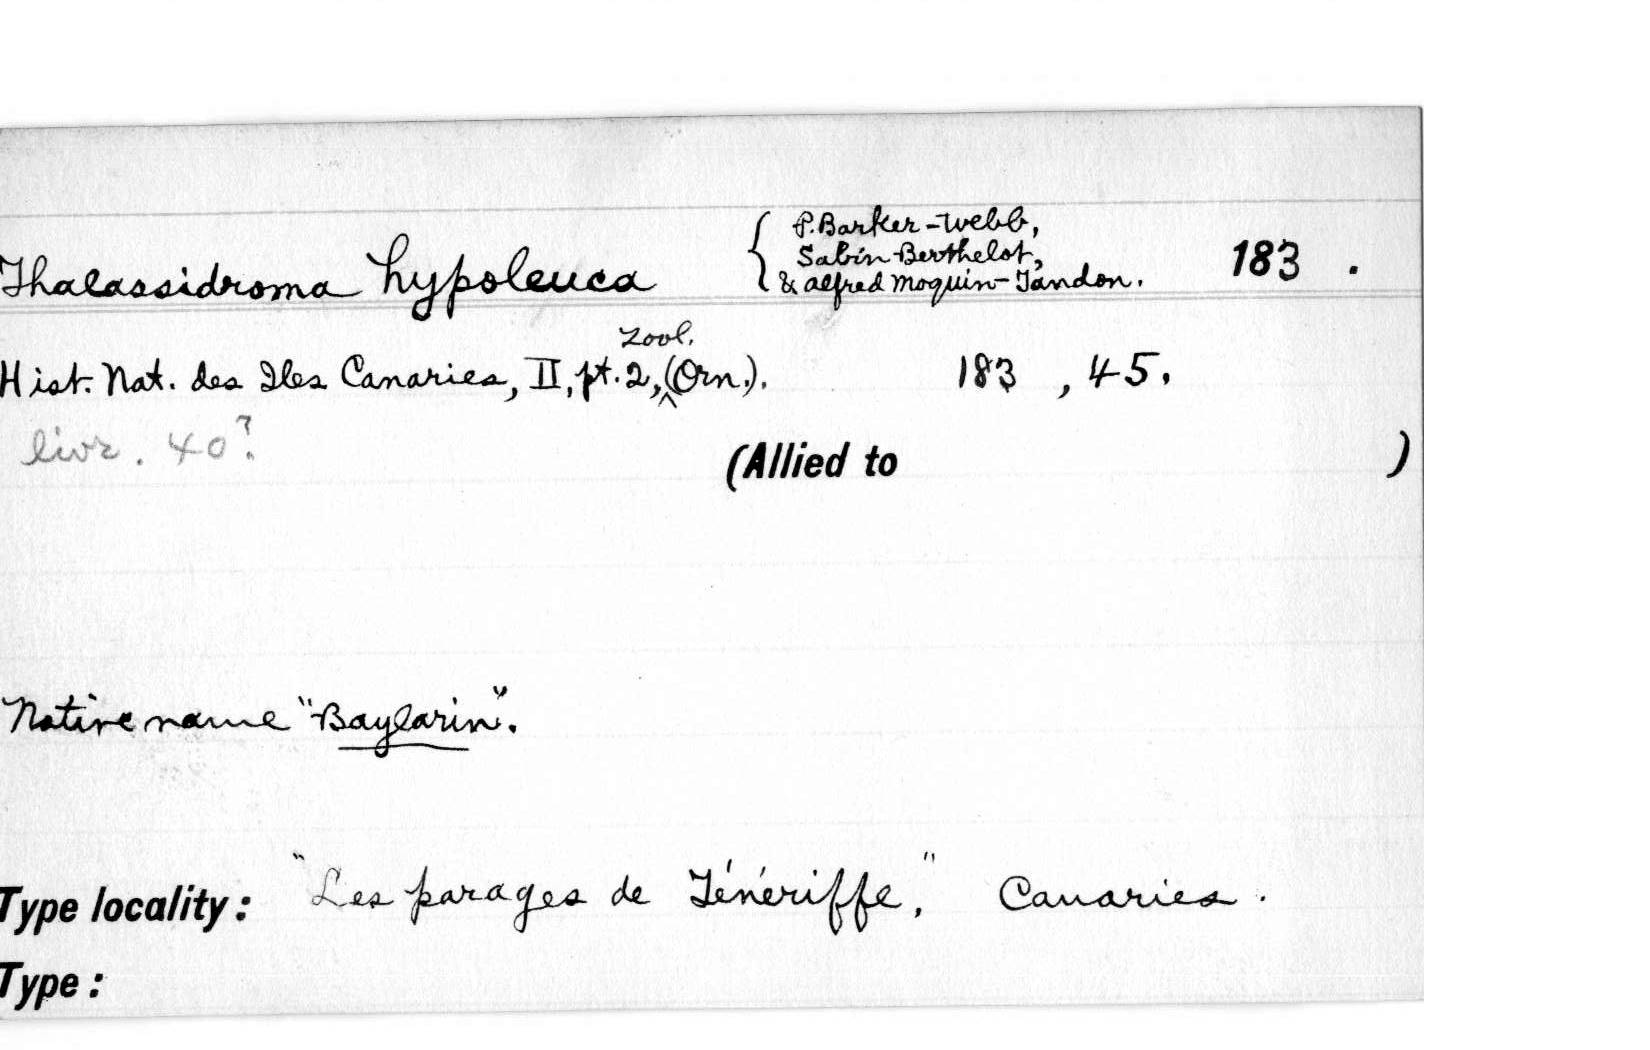 Thalassidroma hypoleuca { P. Barker-Webb, Sabin Berthelot, & Alfred Moquin-Tandon. 183 .
Hist. Nat. des Iles Canaries, II, pt. 2, Zool. (Orn.). 183 , 45.
livr. 40?
(Allied to )
Native name "Baylarin".
Type locality: "Les parages de Ténériffe," Canaries.
Type: